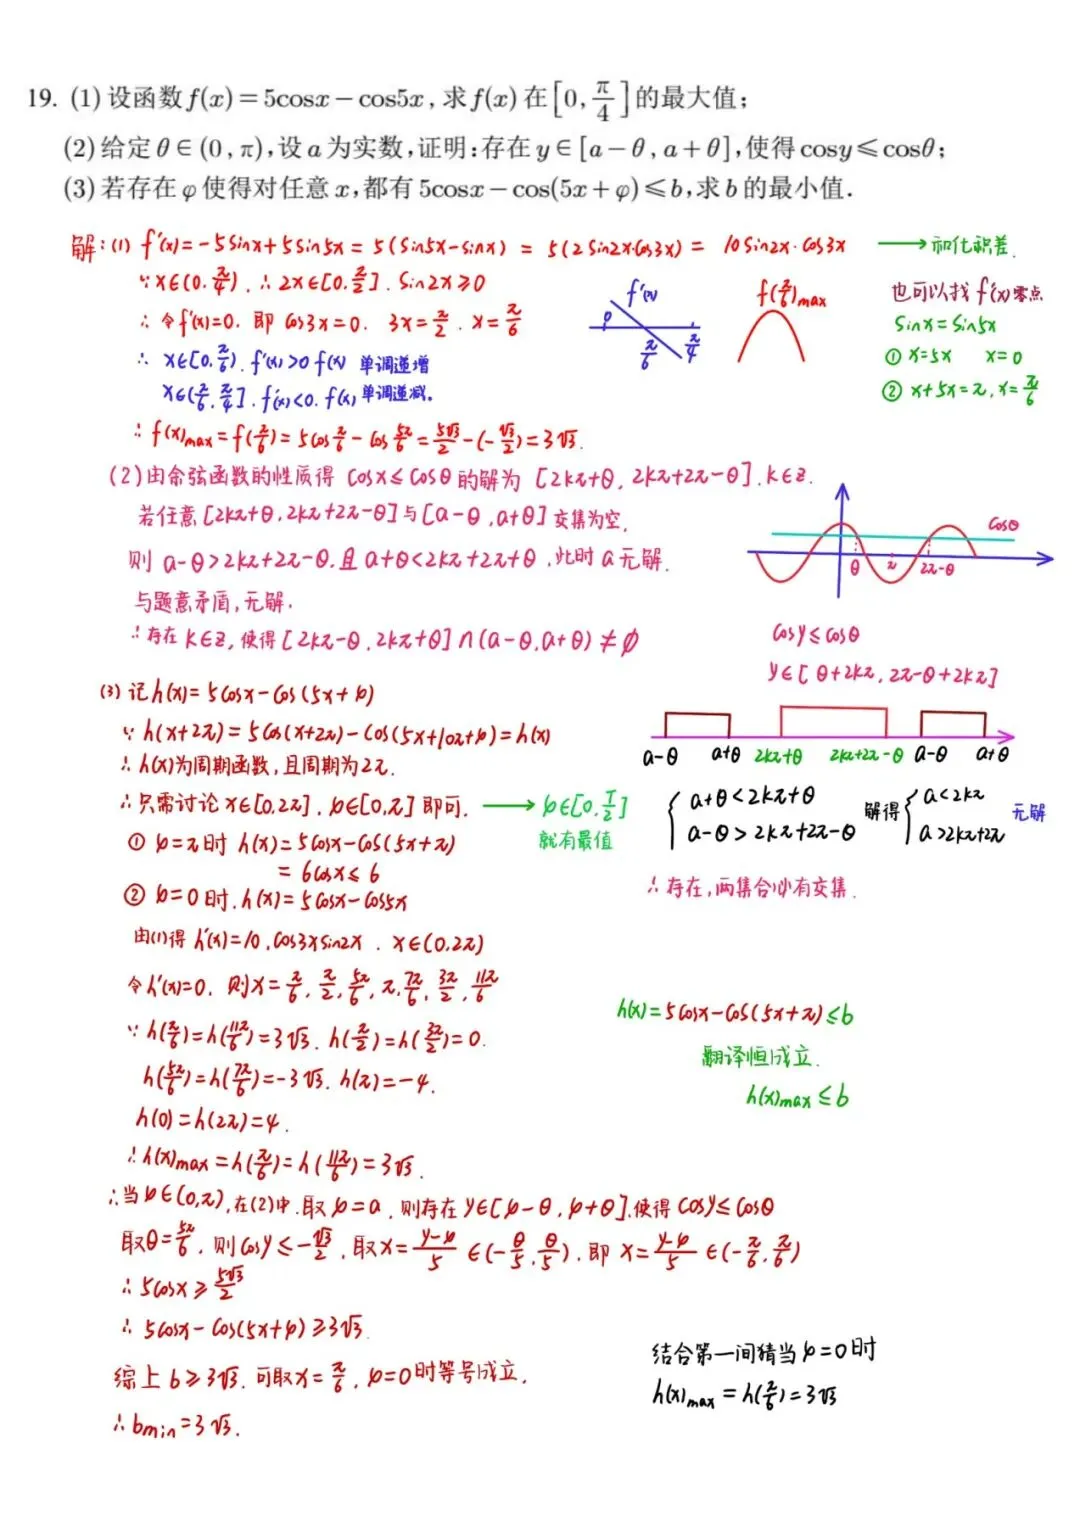 19. (1) 设函数f(x)=5cosx-cos5x, 求f(x)在[0, π/4]的最大值;
(2) 给定θ∈(0, π), 设a为实数, 证明: 存在y∈[a-θ, a+θ], 使得cosy≤cosθ;
(3) 若存在φ使得对任意x, 都有5cosx-cos(5x+φ)≤b, 求b的最小值.
解: (1) f'(x)=-5sinx+5sin5x=5(sin5x-sinx)=5(2sin2x·cos3x)=10sin2x·cos3x → 和化积差.
∵x∈(0.π/4). ∴2x∈[0.π/2]. sin2x≥0
∴令f'(x)=0. 即 cos3x=0. 3x=π/2. x=π/6
∴ x∈[0.π/6). f'(x)>0 f(x) 单调递增
x∈(π/6.π/4]. f'(x)<0. f(x) 单调递减.
∴f(x)max=f(π/6)=5cosπ/6-cos5π/6=5√3/2-(-√3/2)=3√3.
f'(x)
0
π/6
π/4
f(π/6)max
也可以找f'(x)零点
sinx=sin5x
① x=5x x=0
② x+5x=π, x=π/6
(2)由余弦函数的性质得 cosx≤cosθ的解为 [2kπ+θ, 2kπ+2π-θ]. k∈z.
若任意[2kπ+θ, 2kπ+2π-θ]与[a-θ, a+θ]交集为空.
则 a-θ>2kπ+2π-θ.且 a+θ<2kπ+2π+θ, 此时a无解.
与题意矛盾, 无解.
∴存在k∈z, 使得[2kπ-θ, 2kπ+θ]∩(a-θ, a+θ)≠∅
cosθ
θ
π
2π-θ
cosy≤cosθ
y∈[θ+2kπ, 2π-θ+2kπ]
a-θ a+θ 2kπ+θ 2kπ+2π-θ a-θ a+θ
{a+θ<2kπ+θ
a-θ>2kπ+2π-θ 解得 {a<2kπ
a>2kπ+2π 无解
∴存在, 两集合必有交集.
(3) 记h(x)=5cosx-cos(5x+φ)
∵h(x+2π)=5cos(x+2π)-cos(5x+10π+φ)=h(x)
∴h(x)为周期函数, 且周期为2π.
∴只需讨论x∈[0.2π], φ∈[0.π]即可. → φ∈[0.π/2]
就有最值
① φ=π时 h(x)=5cosx-cos(5x+π)
=6cosx≤6
② φ=0时. h(x)=5cosx-cos5x
由(1)得 h'(x)=10.cos3xsin2x. x∈(0.2π)
令h'(x)=0. 则x=π/6. π/2. 5π/6. π. 7π/6. 3π/2. 11π/6
∵h(π/6)=h(11π/6)=3√3. h(π/2)=h(3π/2)=0.
h(5π/6)=h(7π/6)=-3√3. h(π)=-4.
h(0)=h(2π)=4.
∴h(x)max=h(π/6)=h(11π/6)=3√3.
h(x)=5cosx-cos(5x+π)≤b
翻译恒成立.
h(x)max≤b
∴当φ∈(0,π), 在(2)中. 取φ=a. 则存在y∈[φ-θ, φ+θ].使得cosy≤cosθ
取θ=5π/6. 则cosy≤-√3/2. 取x=y-φ/5∈(-θ/5.θ/5). 即 x=y-φ/5∈(-π/6.π/6)
∴5cosx≥5√3/2
∴5cosx-cos(5x+φ)≥3√3.
综上 b≥3√3. 可取x=π/6. φ=0时等号成立.
∴bmin=3√3.
结合第一问猜当φ=0时
h(x)max=h(π/6)=3√3